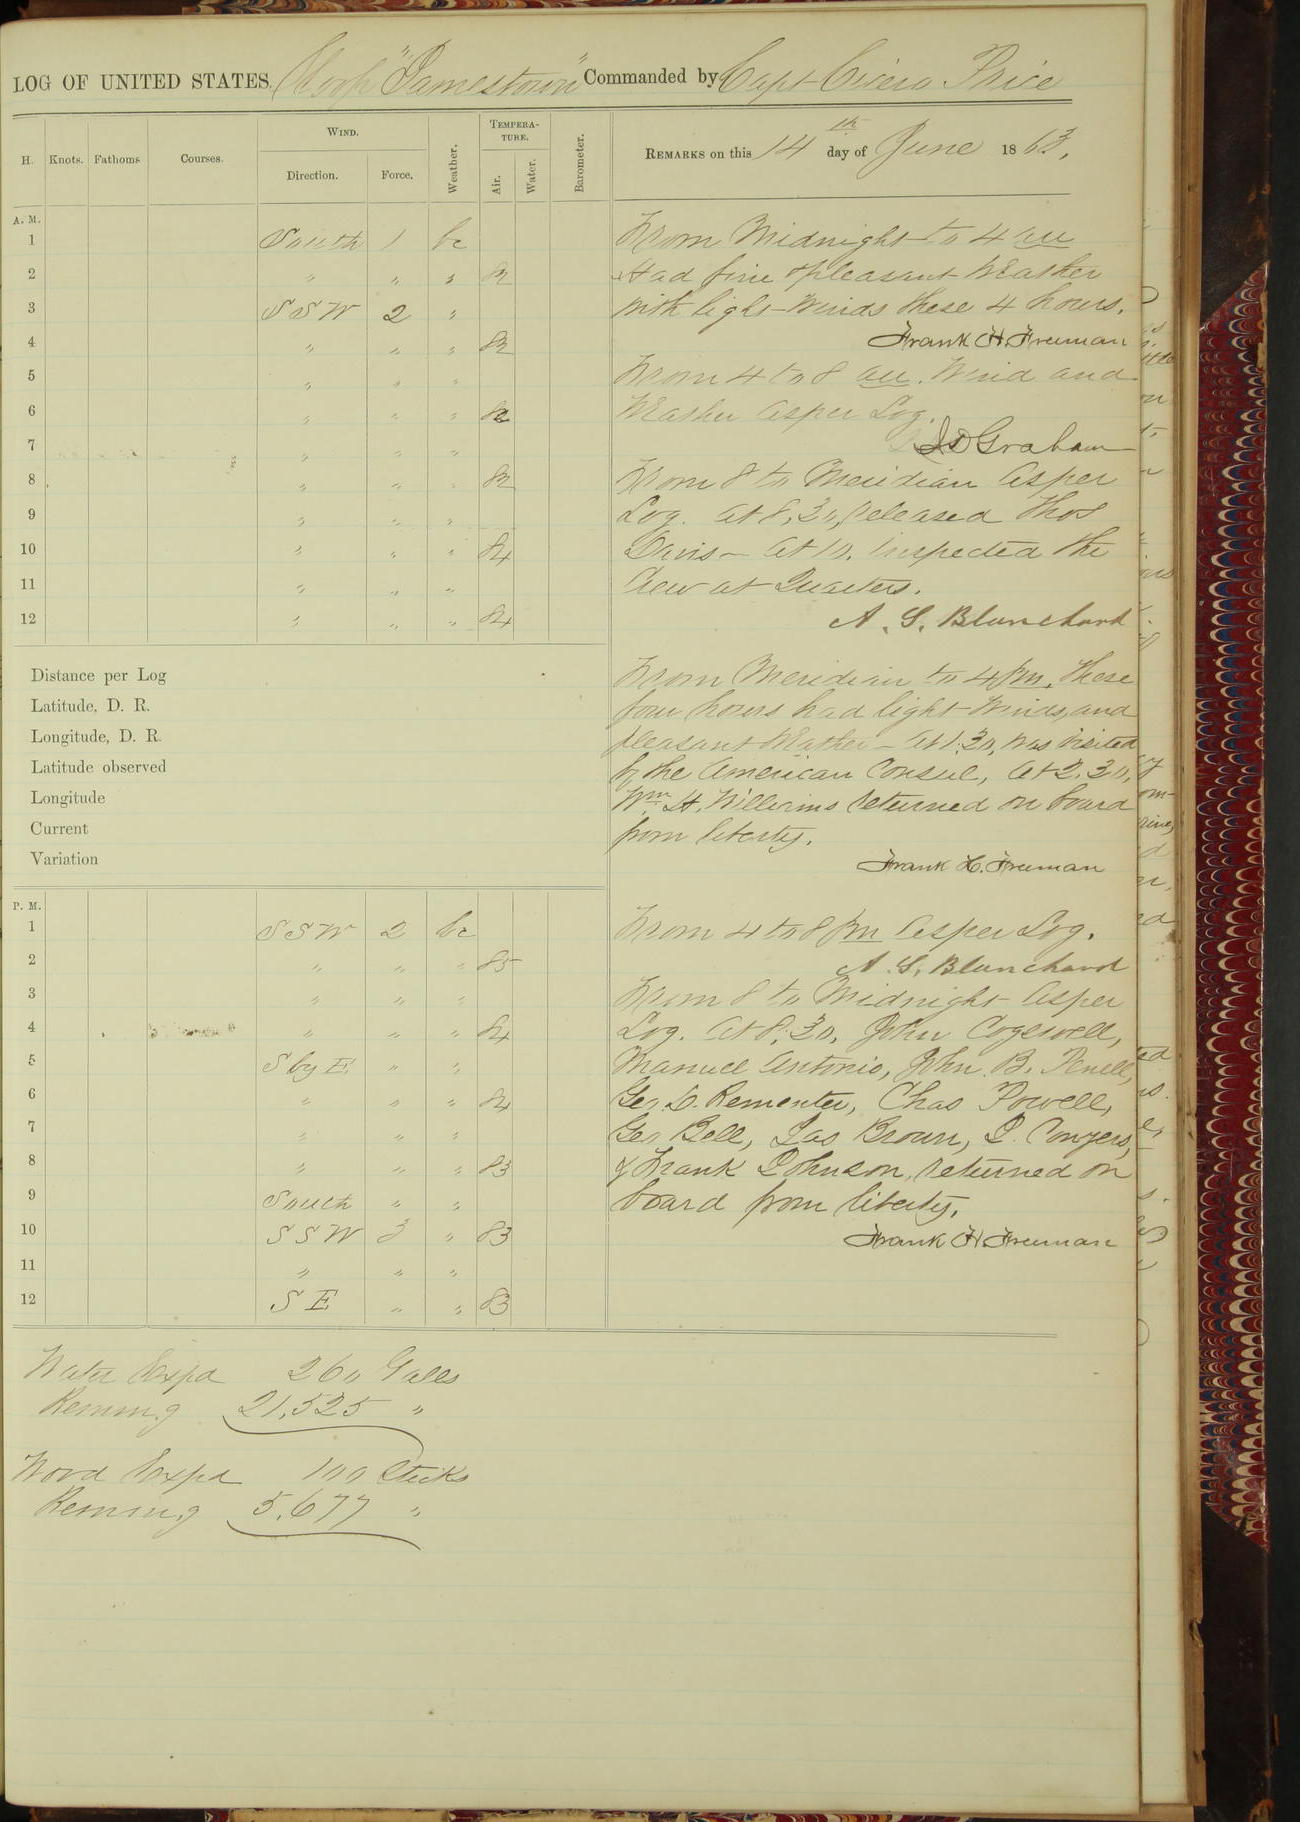 LOG OF UNITED STATES Sloop "Jamestown" Commanded by Capt Cicero Price
H. Knots. Fathoms Courses. WIND. Direction. Force. Weather. TEMPERATURE. Air. Water. Barometer. REMARKS on this 14th day of June 1863.
A. M.
1 South 1 bc
2 " " " 82
3 SSW 2 "
4 " " " 82
5 " " "
6 " " " 82
7 " " "
8 " " " 82
9 " " "
10 " " " 84
11 " " "
12 " " " 84
From Midnight to 4 am
Had fine & pleasant Weather
with light Winds these 4 hours.
Frank H. Freeman
From 4 to 8 am. Wind and
Weather as per Log.
Graham
From 8 to Meridian as per
Log. At 8,30, released Thos
Davis – At 10. inspected the
Crew at Quarters.
A. S. Blanchard
Distance per Log
Latitude, D. R.
Longitude, D. R.
Latitude observed
Longitude
Current
Variation
From Meridian to 4 pm. These
four hours had light Winds, and
pleasant Weather – At 1.30, was visited
by the American Consul, At 2.30,
Wm H. Williams returned on board
from liberty.
Frank H. Freeman
P. M.
1 SSW 2 bc
2 " " " 85
3 " " "
4 " " " 84
5 S by E " "
6 " " " 84
7 " " "
8 " " " 83
9 South " "
10 SSW 3 " 83
11 " " "
12 SE " " 83
From 4 to 8 pm as per Log.
A. S. Blanchard
From 8 to Midnight as per
Log. At 8.30, John Cogswell,
Manuel Antonio, John B.
Geo. Chas Powell,
Geo Bell, Jas Brown, J. Conyers,
& Frank Johnson, returned on
board from liberty.
Frank H. Freeman
Water Expd 260 Galls
Remng 21,525 "
Wood Expd 100 Sticks
Remng 5,677 "